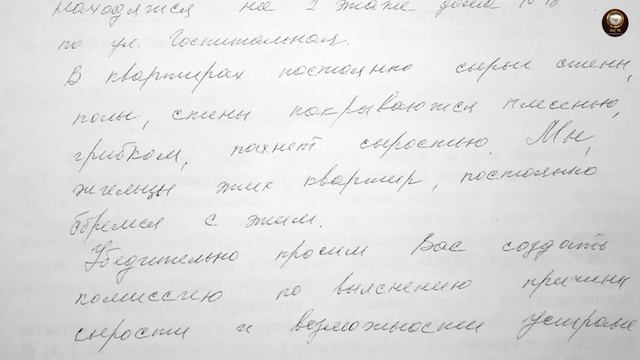 находятся на 1 этаже дома № 18
по ул. Госпитальная.
В квартирах постоянно сырые стены,
полы, стены покрываются плесенью,
грибком, пахнет сыростью. Мы,
жельцы этих квартир, постоянно
боремся с этим.
Убедительно просим Вас создать
комиссию по выяснению причины
сырости и возможности устране